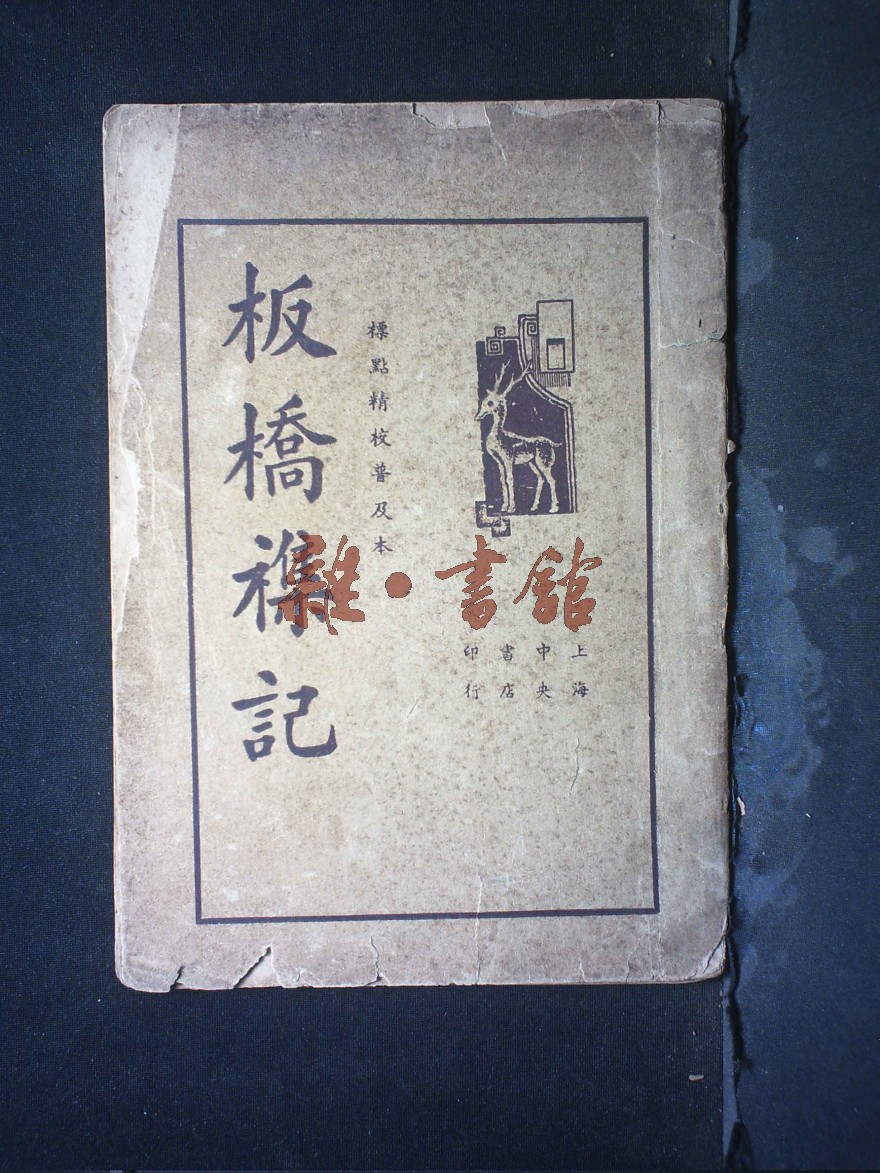 上海
中央
書店
印行
標點精校普及本
板橋襍記
雜•書館